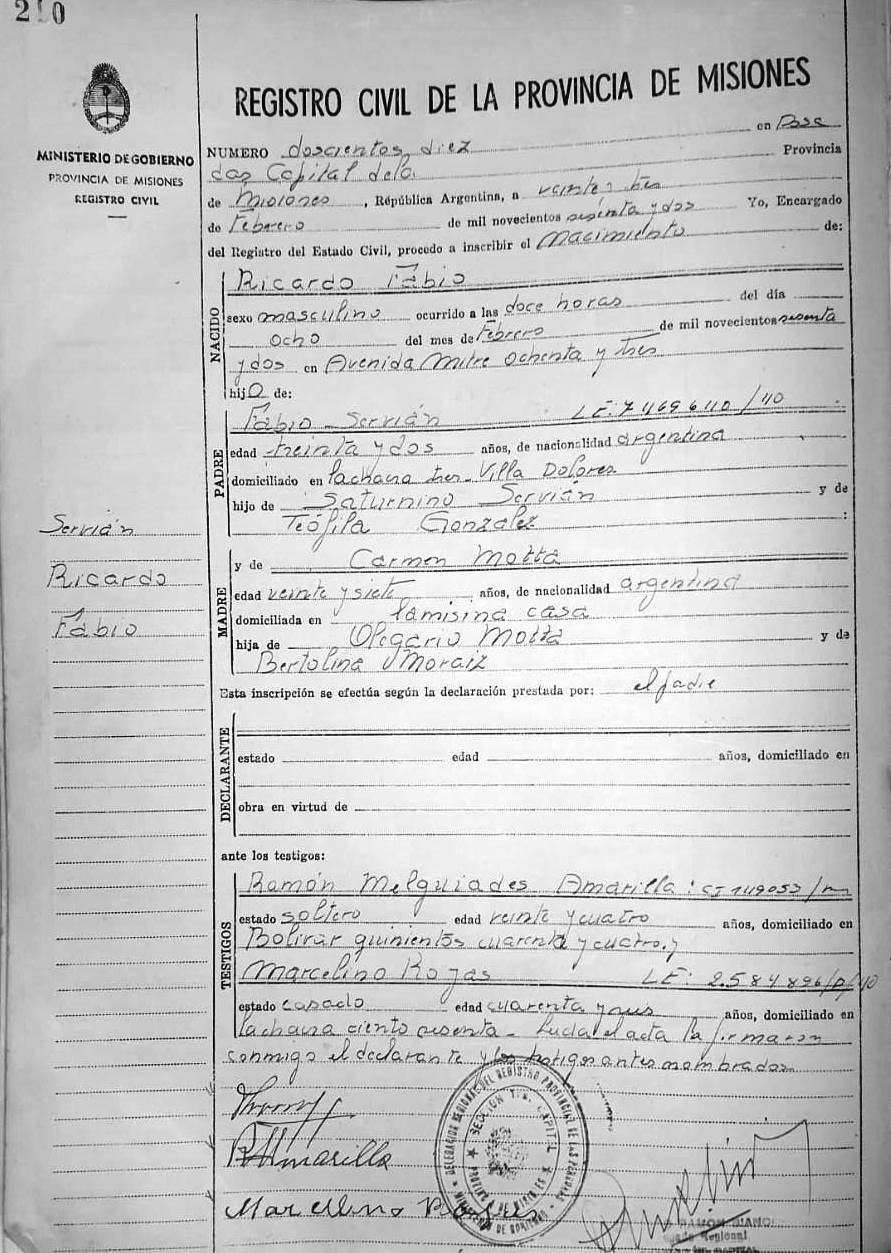 210
MINISTERIO DE GOBIERNO
PROVINCIA DE MISIONES
REGISTRO CIVIL
REGISTRO CIVIL DE LA PROVINCIA DE MISIONES
NUMERO doscientos diez en Posa
das Capital dela Provincia
de Misiones, República Argentina, a veinte y tres
de Febrero de mil novecientos sesenta y dos Yo, Encargado
del Registro del Estado Civil, procedo a inscribir el Nacimiento de:
NACIDO
Ricardo Fabio
sexo masculino ocurrido a las doce horas del día
ocho del mes de Febrero de mil novecientos sesenta
y dos en Avenida Mitre ochenta y tres
hijo de:
PADRE
Fabio Servián LE: 7469640/40
edad treinta y dos años, de nacionalidad argentina
domiciliado en lachacra tres Villa Dolores
hijo de Saturnino Servián y de
Teófila Gonzalez :
MADRE
y de Carmen Motta
edad veinte y siete años, de nacionalidad argentina
domiciliada en lamisma casa
hija de Olegario Motta y de
Bertolina Moraiz
Esta inscripción se efectúa según la declaración prestada por: el padre
DECLARANTE
estado edad años, domiciliado en
obra en virtud de
ante los testigos:
TESTIGOS
Ramón Melquiades Amarilla: CI 149053/m
estado soltero edad veinte y cuatro años, domiciliado en
Bolivar quinientos cuarenta y cuatro. y
Marcelino Rojas LE: 2.584896/D/40
estado casado edad cuarenta y años, domiciliado en
lachacra ciento sesenta - Leida el acta la firmaron
conmigo el declarante y los testigos antes nombrados
Servián
Ricardo
Fabio
RMAmarilla
Marcelino Rojas
SECCION 1ra. CAPITAL
MINISTERIO DE GOBIERNO
RAMON BIANC
Regional